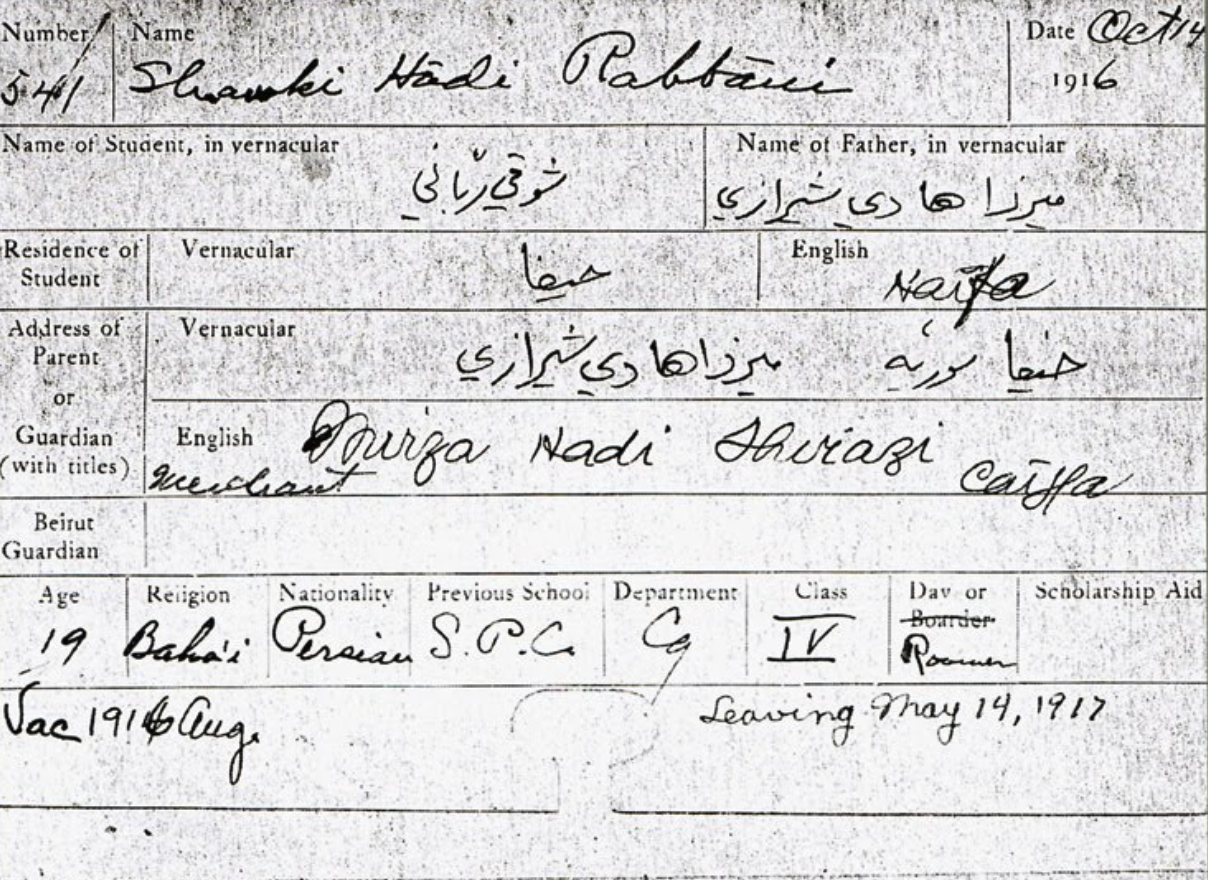 Number Name Date Oct 14
541 Shawki Hādi Rabbāni 1916
Name of Student, in vernacular Name of Father, in vernacular
شوقي ربّاني ميرزا هادي شيرازي
Residence of Student Vernacular حيفا English Haifa
Address of Parent or Guardian (with titles)
Vernacular حيفا سوريه ميرزا هادي شيرازي
English Mirza Hadi Shirazi
Merchant Caiffa
Beirut Guardian
Age Religion Nationality Previous School Department Class Day or Boarder Scholarship Aid
19 Baha'i Persian S.P.C. Cg IV Roomer
Vac 1916 Aug. Leaving May 14, 1917